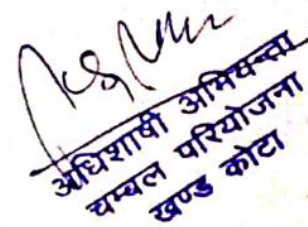 अधिशाषी अभियन्ता
चम्बल परियोजना
खण्ड कोटा